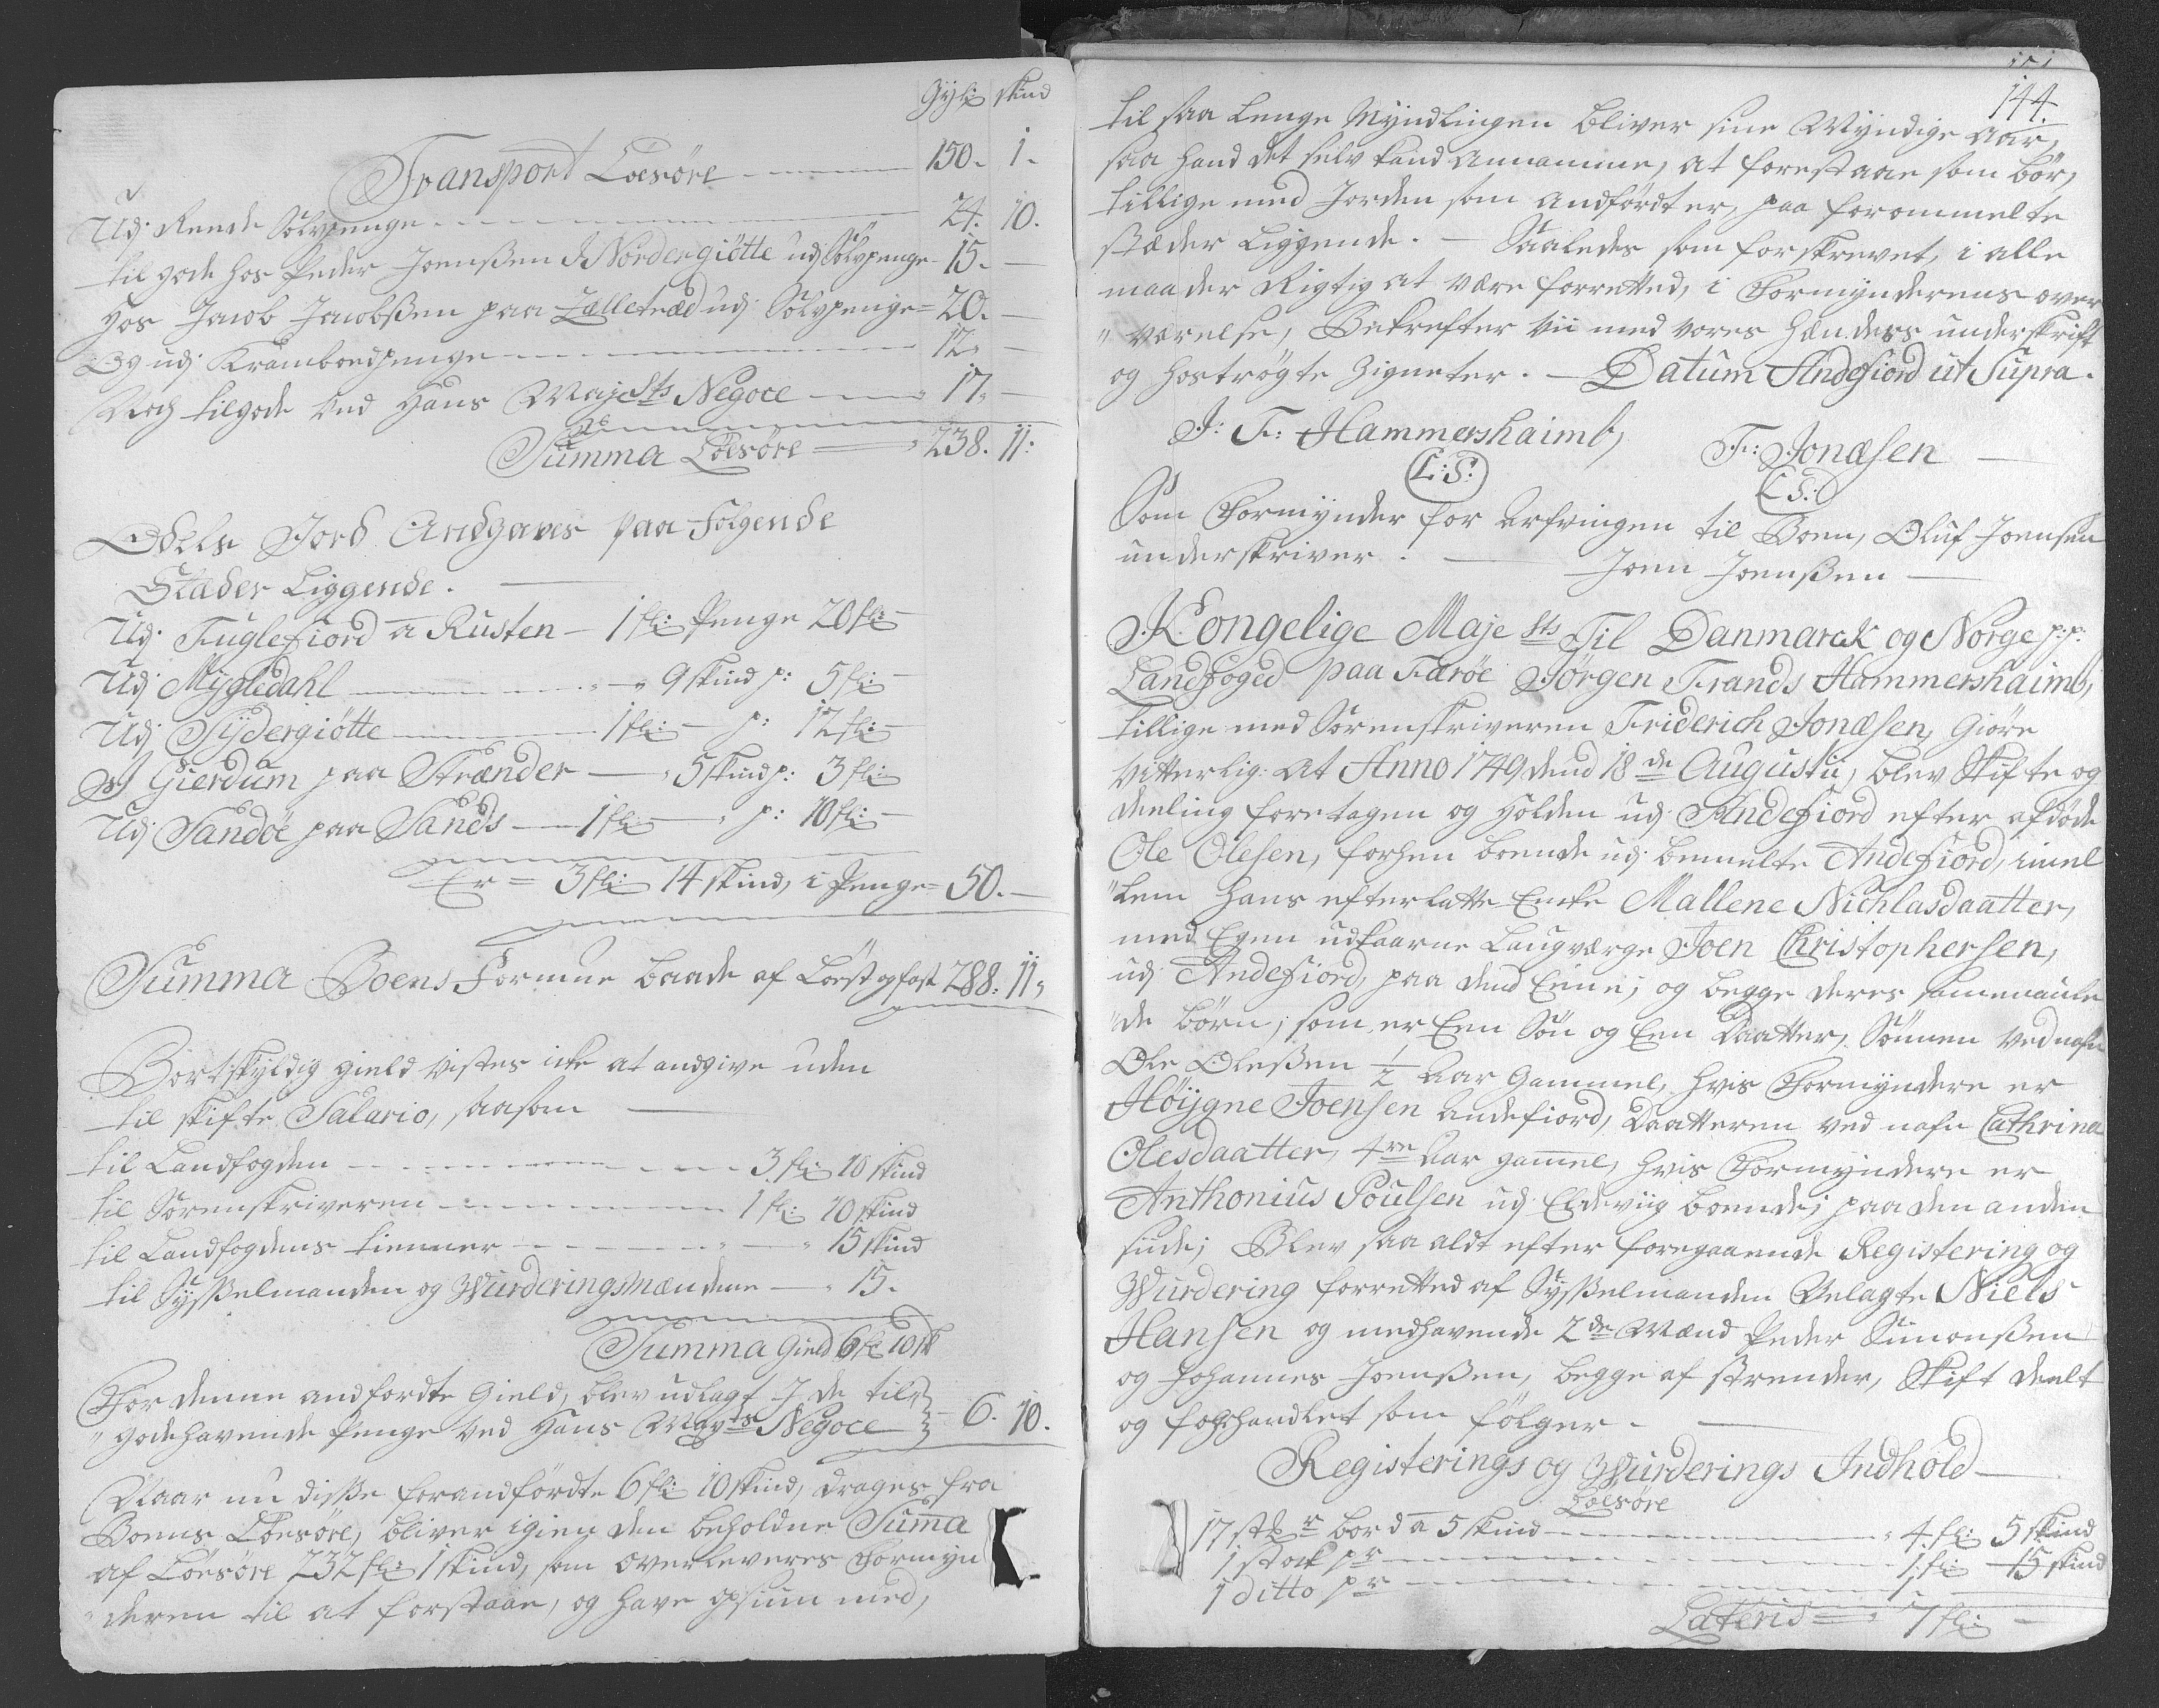 Gyl: skind
Transport Löesöre 150. 1.
Udj Rende Sölvpenge 24. 10.
til gode hos Peder Joenßen I Nordergiötte udj Sölvpenge 15. —
Hos Jacob Jacobßen paa Zelletræd udj Sölvpenge 20. —
Og udj Kramboedpenge 12. —
Noch tilgode ved Hans Majests Negoce 17. —
Summa Löesöre 238. 11:
Odels Jord Andgaves paa Følgende
Stæder Liggende.
Udj Fuglefiord a Rusten 1 fl: Penge 20 fl:
Udj Mygledahl 9 skind p: 5 fl:
Udj Sÿdergiötte 1 fl: p: 12 fl:
I Gierdum paa Strænder 5 skind p: 3 fl:
Udj Sandöe paa Sands 1 fl: p: 10 fl:
Er = 3 fl: 14 skind, i Penge = 50. —
Summa Boens Formue baade af Löest og fast 288. 11,
Bortskyldig gield vistes icke at andgive uden
til skifte Salario, saasom
til Landfogden 3 fl: 10 skind
til Sorenskriveren 1 fl: 10 skind
til Landfogdens tienner 15 skind
til Sysselmanden og Wurderingsmændene 15.
Summa Gield 6 fl: 10 sk
For denne andfordte Gield, blev udlagt I de til
" godehavende Penge ved Hans Mayts Negoce 6. 10.
Naar nu disse forandfördte 6 fl: 10 skind, drages fra
Boens Löesöre, bliver igien den beholdne Suma
af Löesöre 232 fl: 1 skind, som overleveres Formyn
" deren til at forstaae, og have opsiun med,
144.
til saa Lenge Myndlingen bliver sine Myndige Aar,
saa hand det selv kand Annamme, at forestaae som bör,
tillige med Jorden som Andfördt er, paa forommelte
stæder Liggende. — Saaledes som forskrevet, i alle
maader Rigtig at være forretted, i Formynderens over
" værelse, Bekrefter vii med vores Hænders underskrift
og hostrøgte Zigneter. — Datum Andefiord ut Supra.
J: F: Hammershaimb, F: Jonæsen
(L:S:) (L:S:)
Som Formynder for Arfvingen til Boen, Oluf Joensen
underskriver. — Joen Joenßen —
Kongelige Majests Til Danmarck og Norge p:p:
Landfoged paa Færöe Jörgen Frands Hammershaimb,
tillige med Sorenskriveren Friderich Jonæsen, Giöre
Vitterlig: At Anno 1749 dend 18de Augustij, blev Skifte og
deeling foretagen og holden udj Andefiord efter afdöde
Ole Olesen, forhen boende udj bemelte Andefiord, imel
" lem Hans efterlatte Encke Mallene Nichlasdaatter,
med Egen udkaarne Laugværge Joen Christophersen,
udj Andefiord, paa dend Eene; og begge deres sammenaule
" de börn, som er Een Sön og Een Daatter, Sönnen ved nafn
Ole Oleßen 1/2 Aar Gammel, hvis Formyndere er
Höijgne Joensen Andefiord, Daatteren ved nafn Cathrina
Olesdaatter, 4re Aar gamel, hvis Formyndere er
Anthonius Poulsen udj Eldeviig boende; paa den anden
siide; Blev saa aldt efter foregaaende Registering og
Wurdering forretted af Sysselmanden Velagte Niels
Hansen og medhavende 2de Mænd Peder Simonßen
og Johannes Joenßen, begge af Strender, Skift deelt
og forhandlet som følger. —
Registerings og Wurderings Indhold
Löesöre
17 stkr bord a 5 skind 4 fl: 5 skind
1 stock pr 1 fl: 15 skind
1 ditto pr 1 —
Lateris 7 fl: —